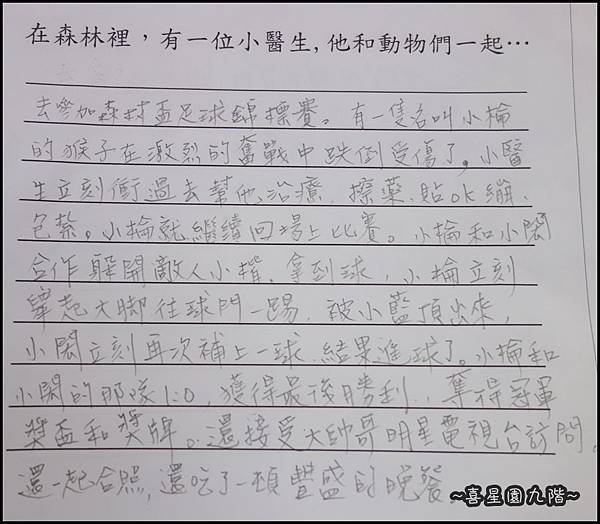 在森林裡，有一位小醫生，他和動物們一起…
去參加森林盃足球錦標賽。有一隻名叫小棆
的猴子在激烈的奮戰中跌倒受傷了。小醫
生立刻衝過去幫他治療、擦藥、貼ok繃、
包紮。小棆就繼續回場上比賽。小棆和小閎
合作躲開敵人小楷，拿到球，小棆立刻
舉起大腳往球門一踢，被小藍頂出來，
小閎立刻再次補上一球，結果進球了。小棆和
小閎的那隊1:0，獲得最後勝利，奪得冠軍
獎盃和獎牌。還接受大帥哥明星電視台訪問。
還一起合照，還吃了一頓豐盛的晚餐
~喜星園九階~